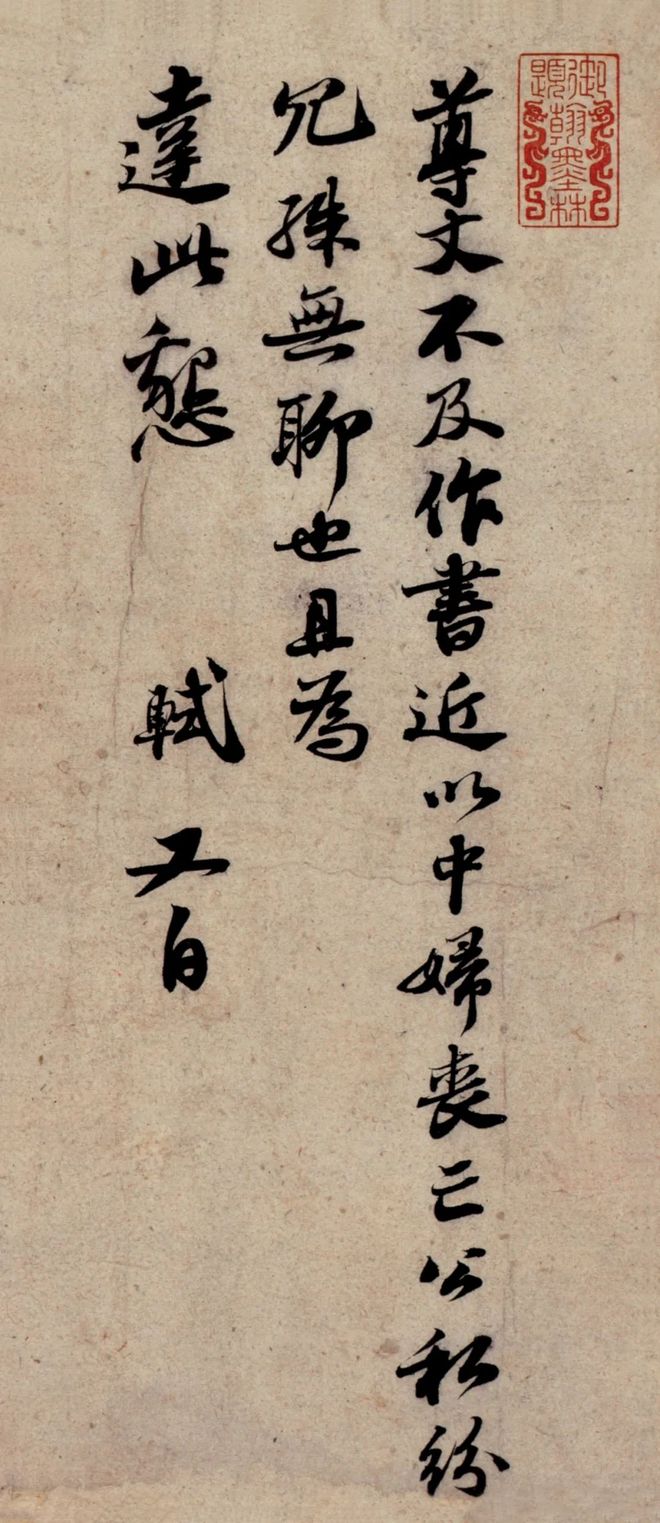 御題翰墨林
尊丈不及作書近以中婦喪亡公私紛
冗殊無聊也且為
達此懇　軾又白